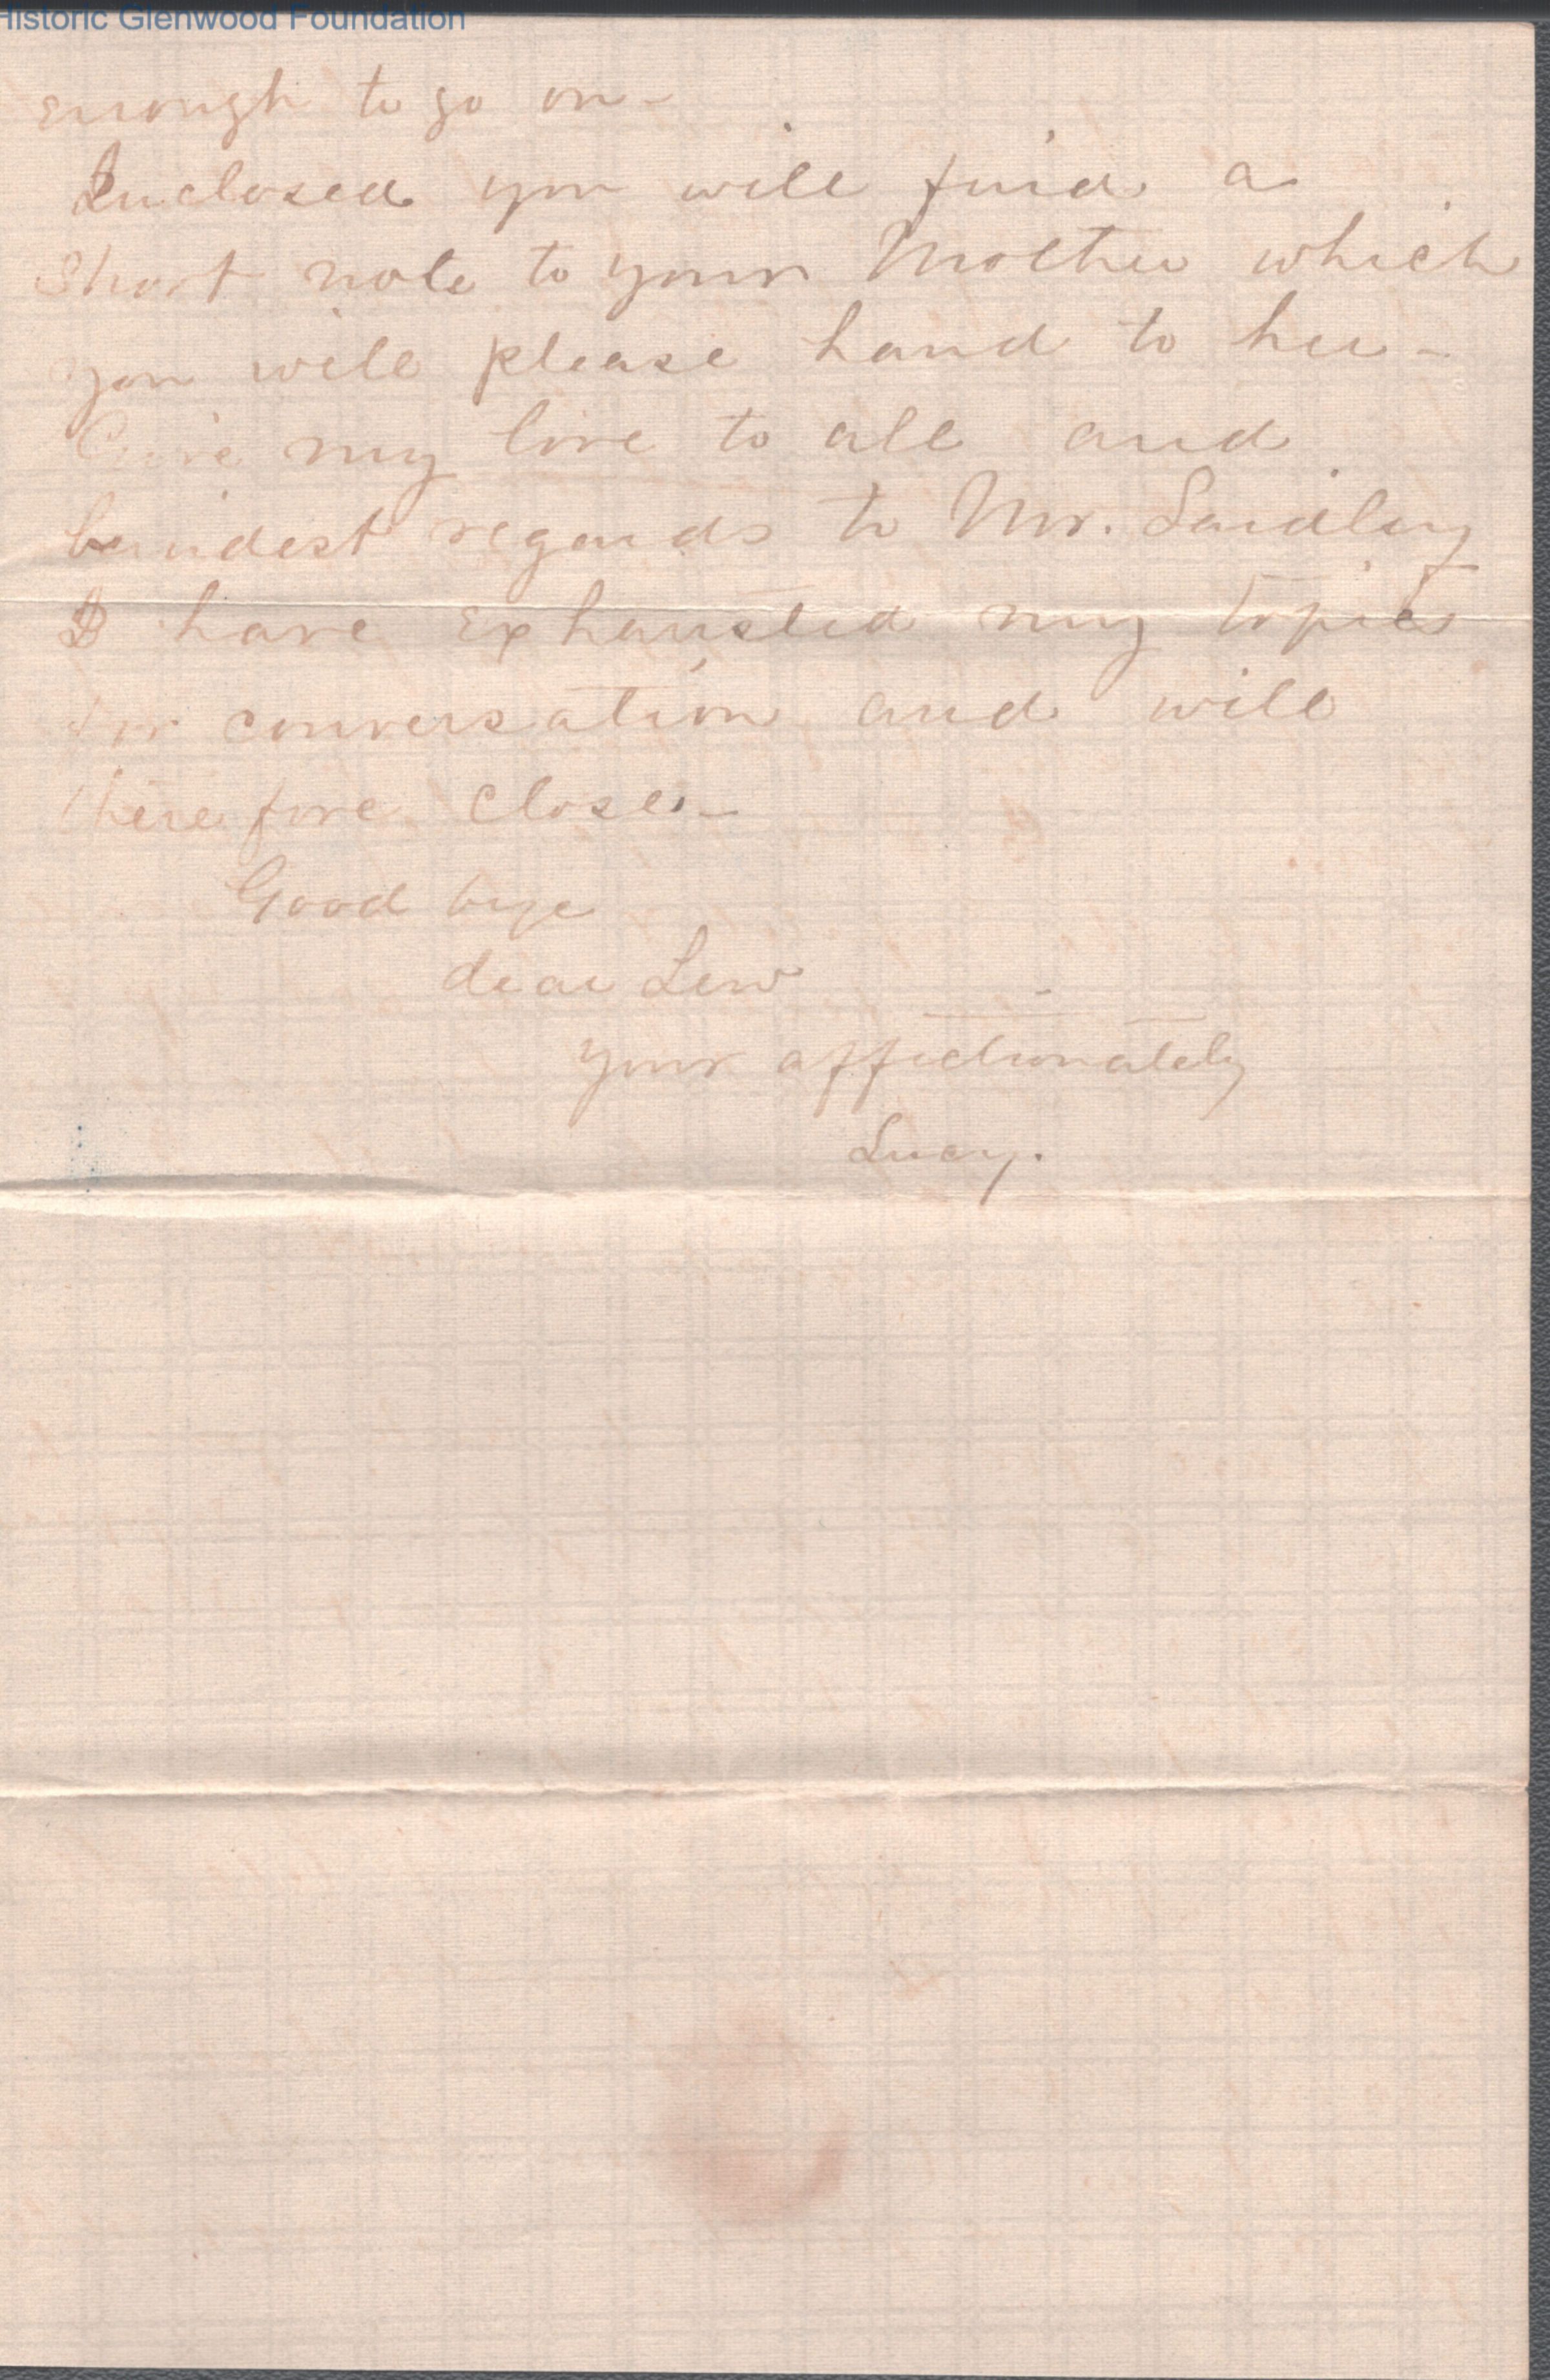 Historic Glenwood Foundation
enough to go on -
Inclosed you will find a
short note to your Mother which
you will please hand to her -
Give my love to all and
kindest regards to Mr.
I have exhausted my topics
for conversation and will
therefore close. -
Good bye
dear Lew
your affectionately
Lucy.